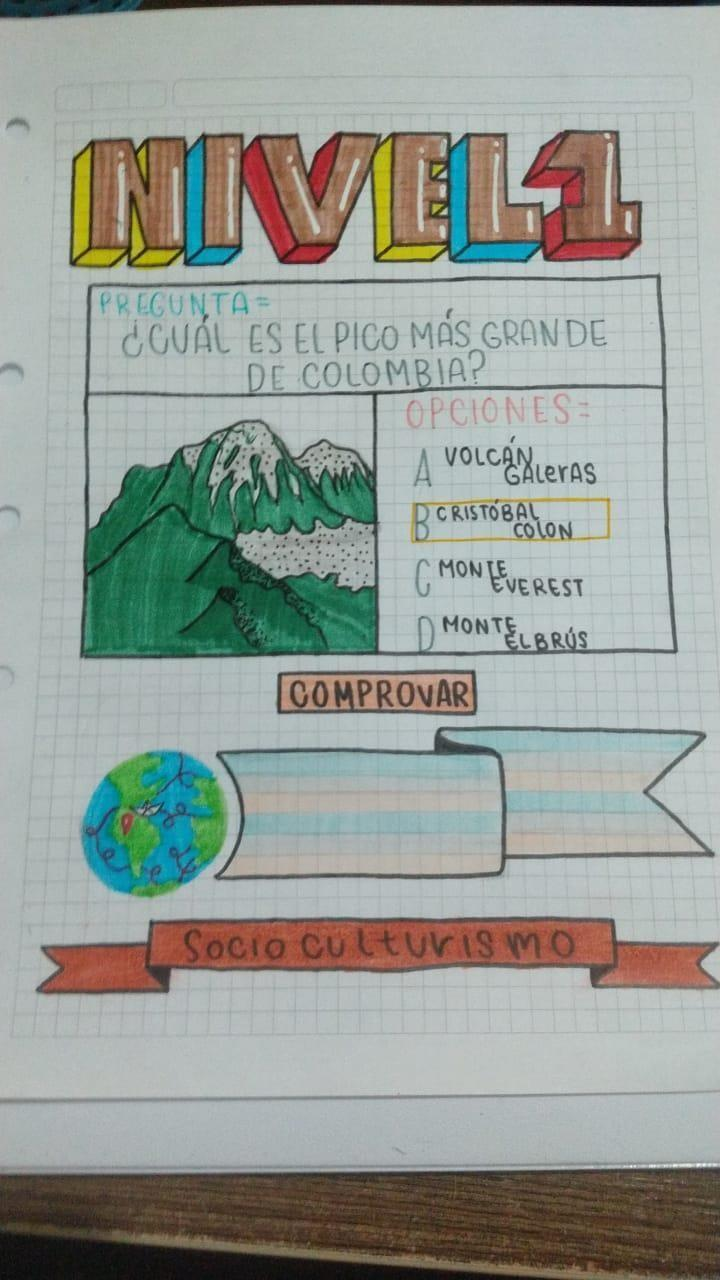 NIVEL 1
PREGUNTA=
¿CUÁL ES EL PICO MÁS GRANDE
DE COLOMBIA?
OPCIONES=
A VOLCÁN
GALERAS
B CRISTÓBAL
COLON
C MONTE
EVEREST
D MONTE
ELBRÚS
COMPROVAR
Socio culturismo